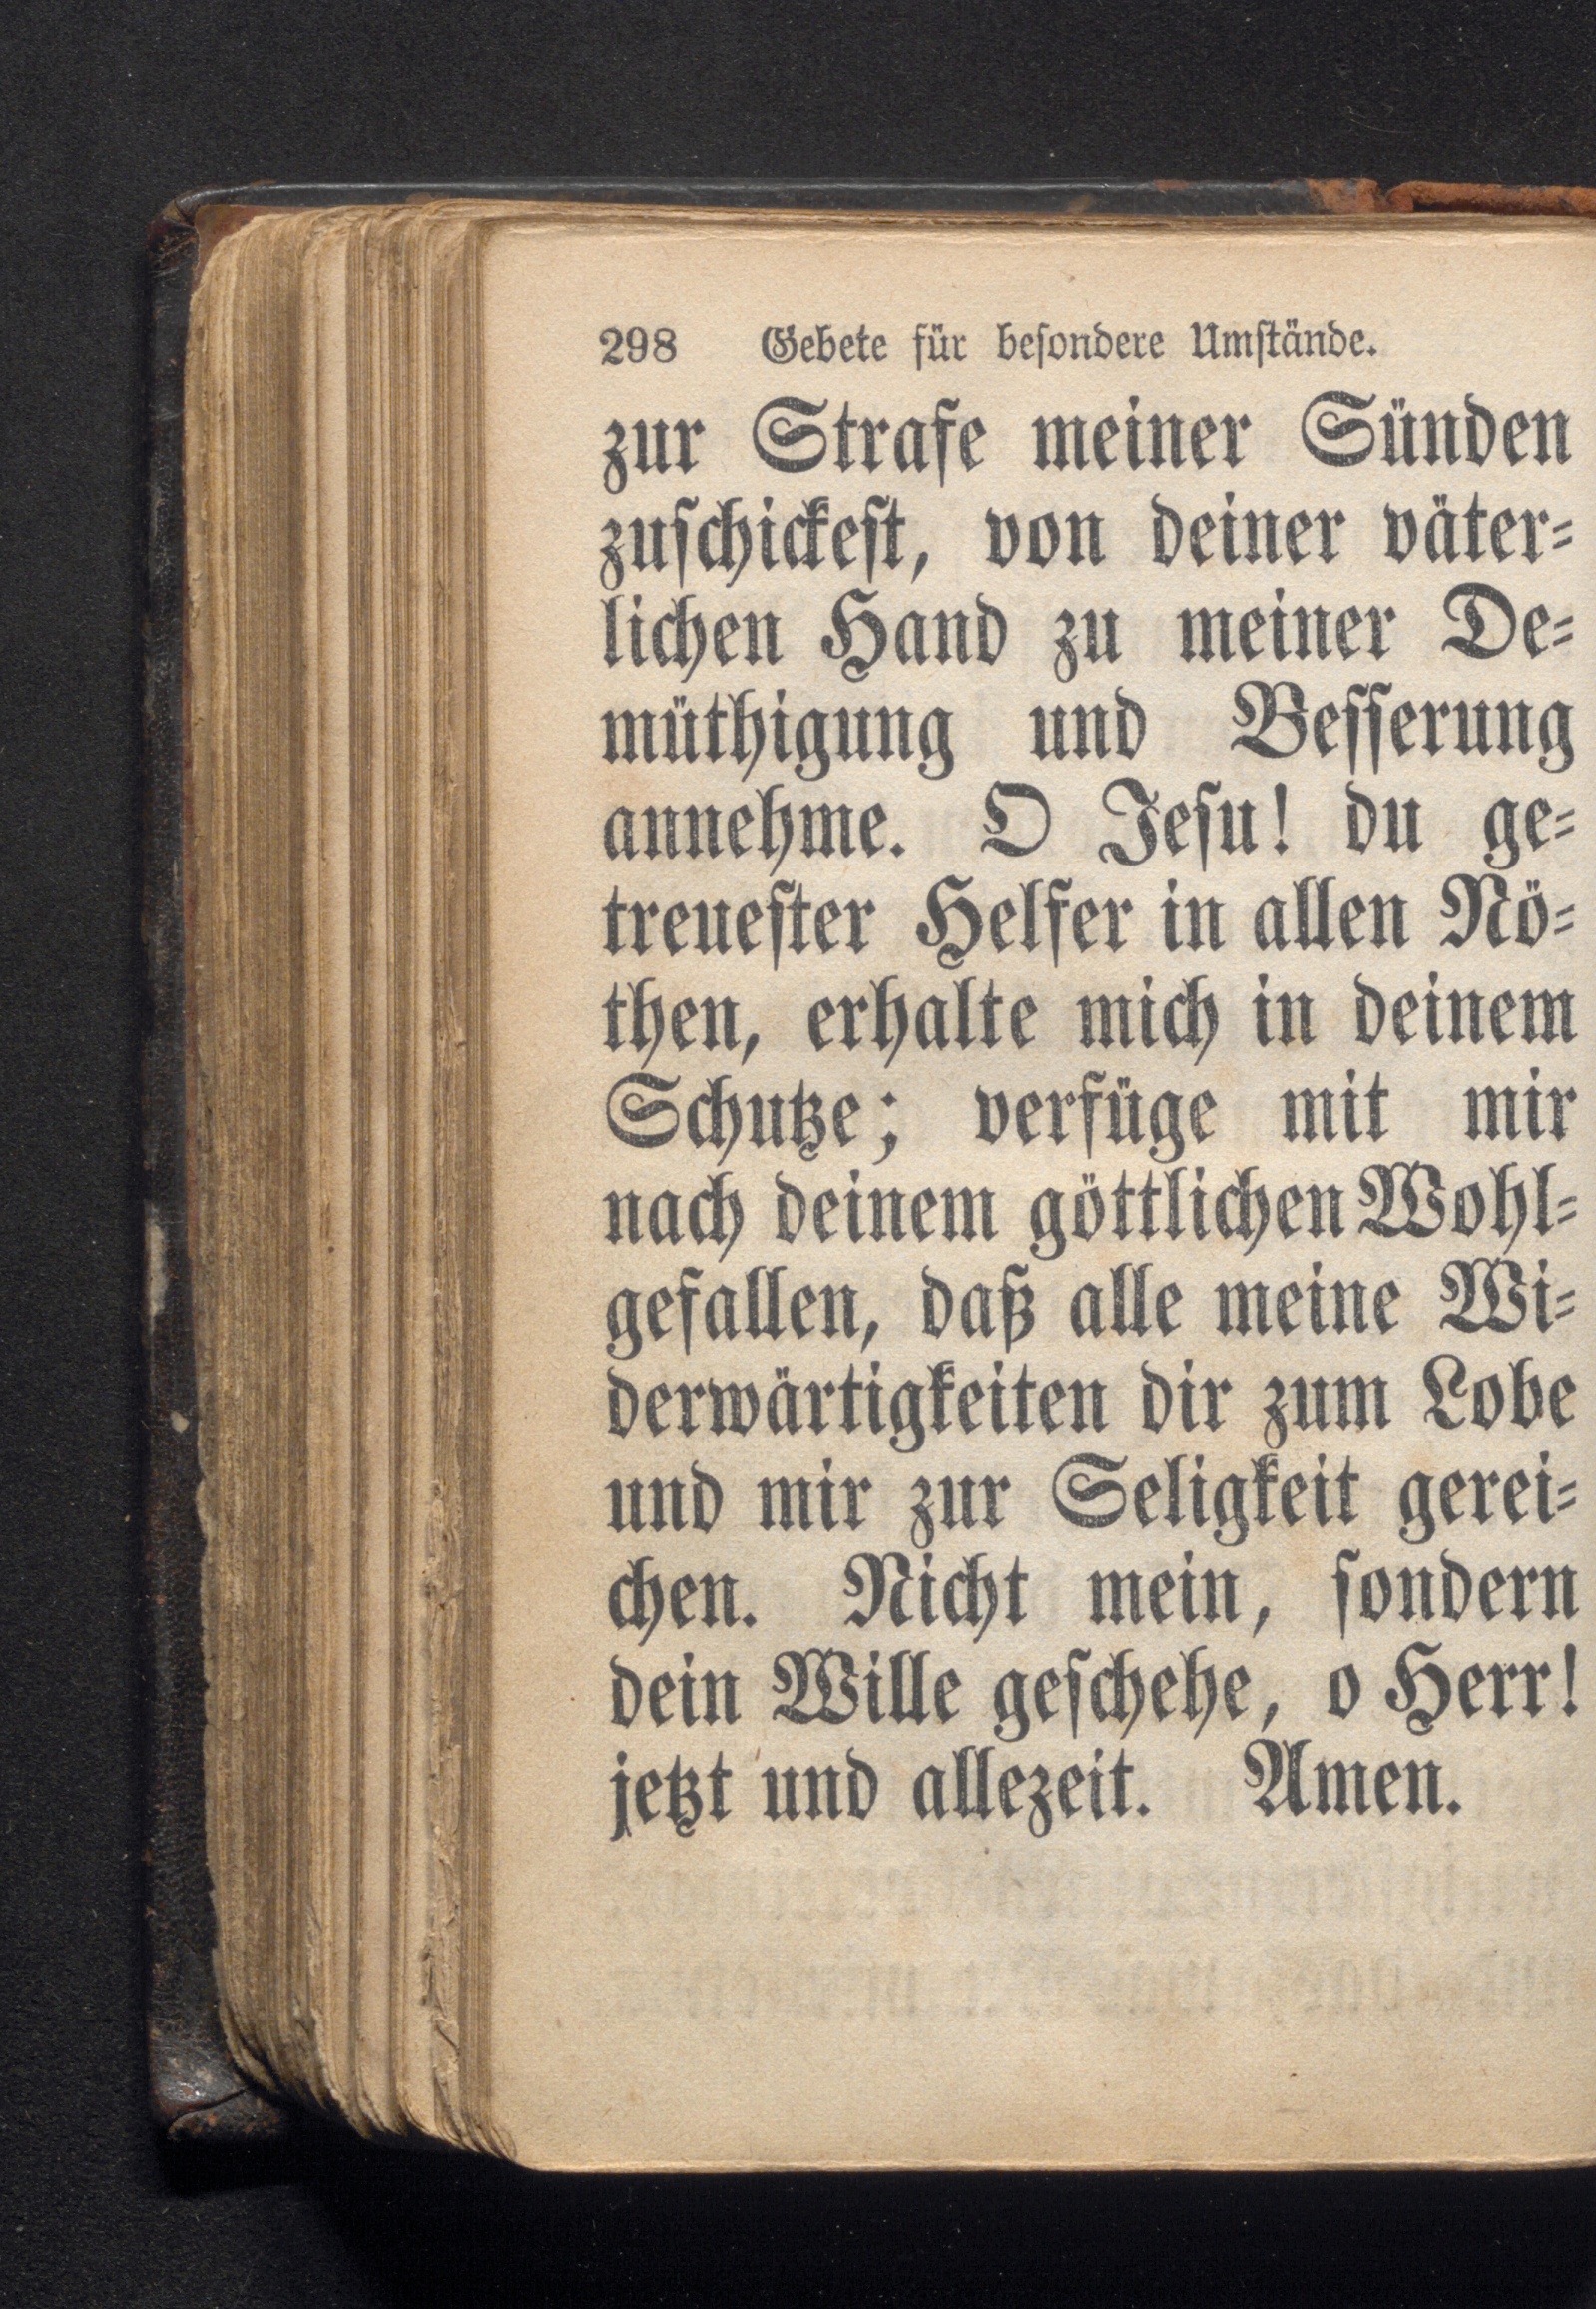 298 Gebete für beſondere Umſtände.
zur Strafe meiner Sünden
zuſchickeſt, von deiner väter⸗
lichen Hand zu meiner De⸗
müthigung und Beſſerung
annehme. O Jeſu! du ge⸗
treueſter Helfer in allen Nö⸗
then, erhalte mich in deinem
Schutze; verfüge mit mir
nach deinem göttlichen Wohl⸗
gefallen, daß alle meine Wi⸗
derwärtigkeiten dir zum Lobe
und mir zur Seligkeit gerei⸗
chen. Nicht mein, ſondern
dein Wille geſchehe, o Herr!
jetzt und allezeit. Amen.